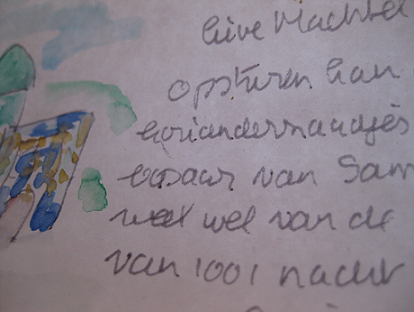 lieve Machtel
opsturen kan
koriandernaadjes
van Sam
weet wel van de
van 1001 nacht